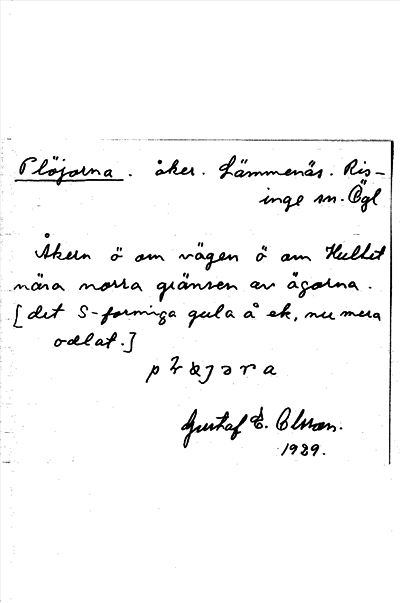 Plöjorna. åker. Lämmenäs. Ris-
inge sn. Ögl
Åkern ö om vägen ö om Hulhet
nära norra gränsen av ägorna.
[det S-formiga gula å ek, nu mera
odlat.]
Gustaf E. Olsson.
1929.